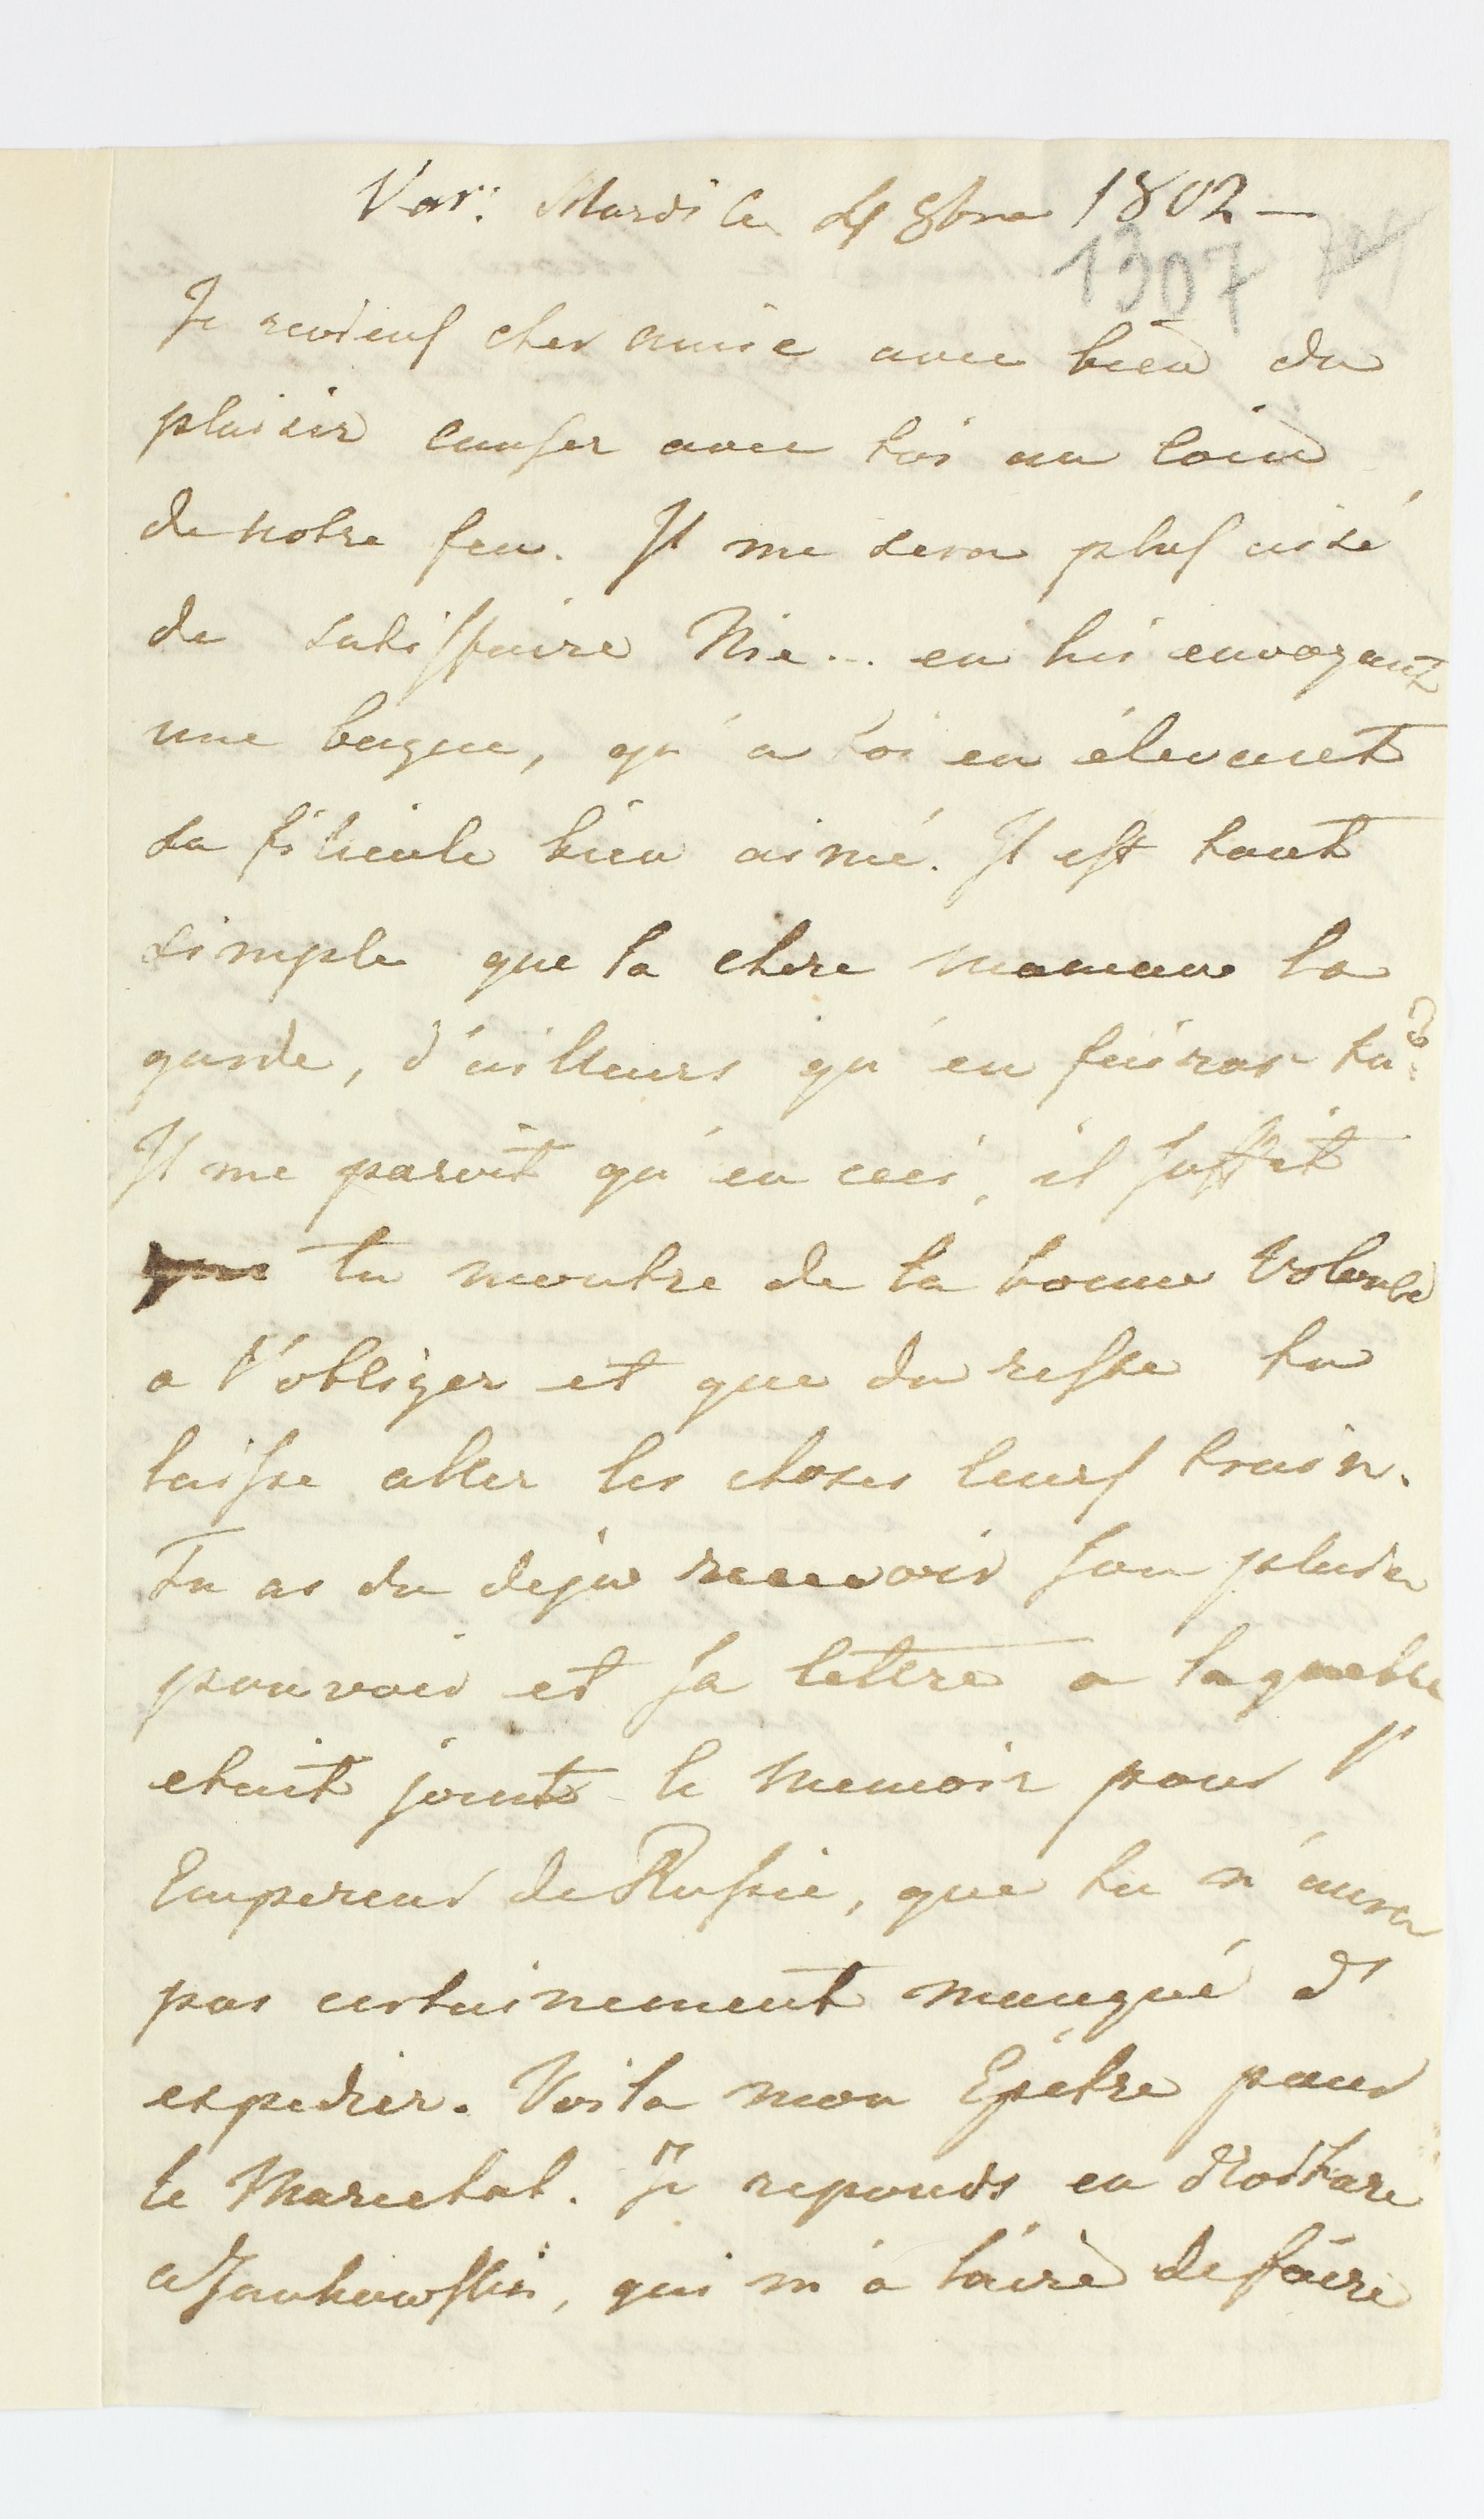 Var: Mardi le 4 8bre 1802 —
1307
Je reviens cher amie avec bien du
plaisir causer avec toi au coin
de notre feu. Il me sera plus aisé
de satisfaire Nie... en lui envoyant
une bague, qu'a toi en élevant
sa filieule bien aimé. Il est tout
simple que la chere maman la
garde, d'ailleurs qu'en fairas tu?
Il me paroit qu'en ceci, il suffit
que tu montre de la bonne volonté
a l'obliger et que du reste tu
laisse aller les choses leurs train.
Tu as du deja recevoir son plein
pouvoir et sa lettre a laquelle
etait joint le memoir pour l'
Empereur de Russie, que tu n'aura
pas certainement manqué d'
expedier. Voila mon Epétre pour
le Marechal. Je reponds en
a Jankowski, qui m'a l'aire de faire